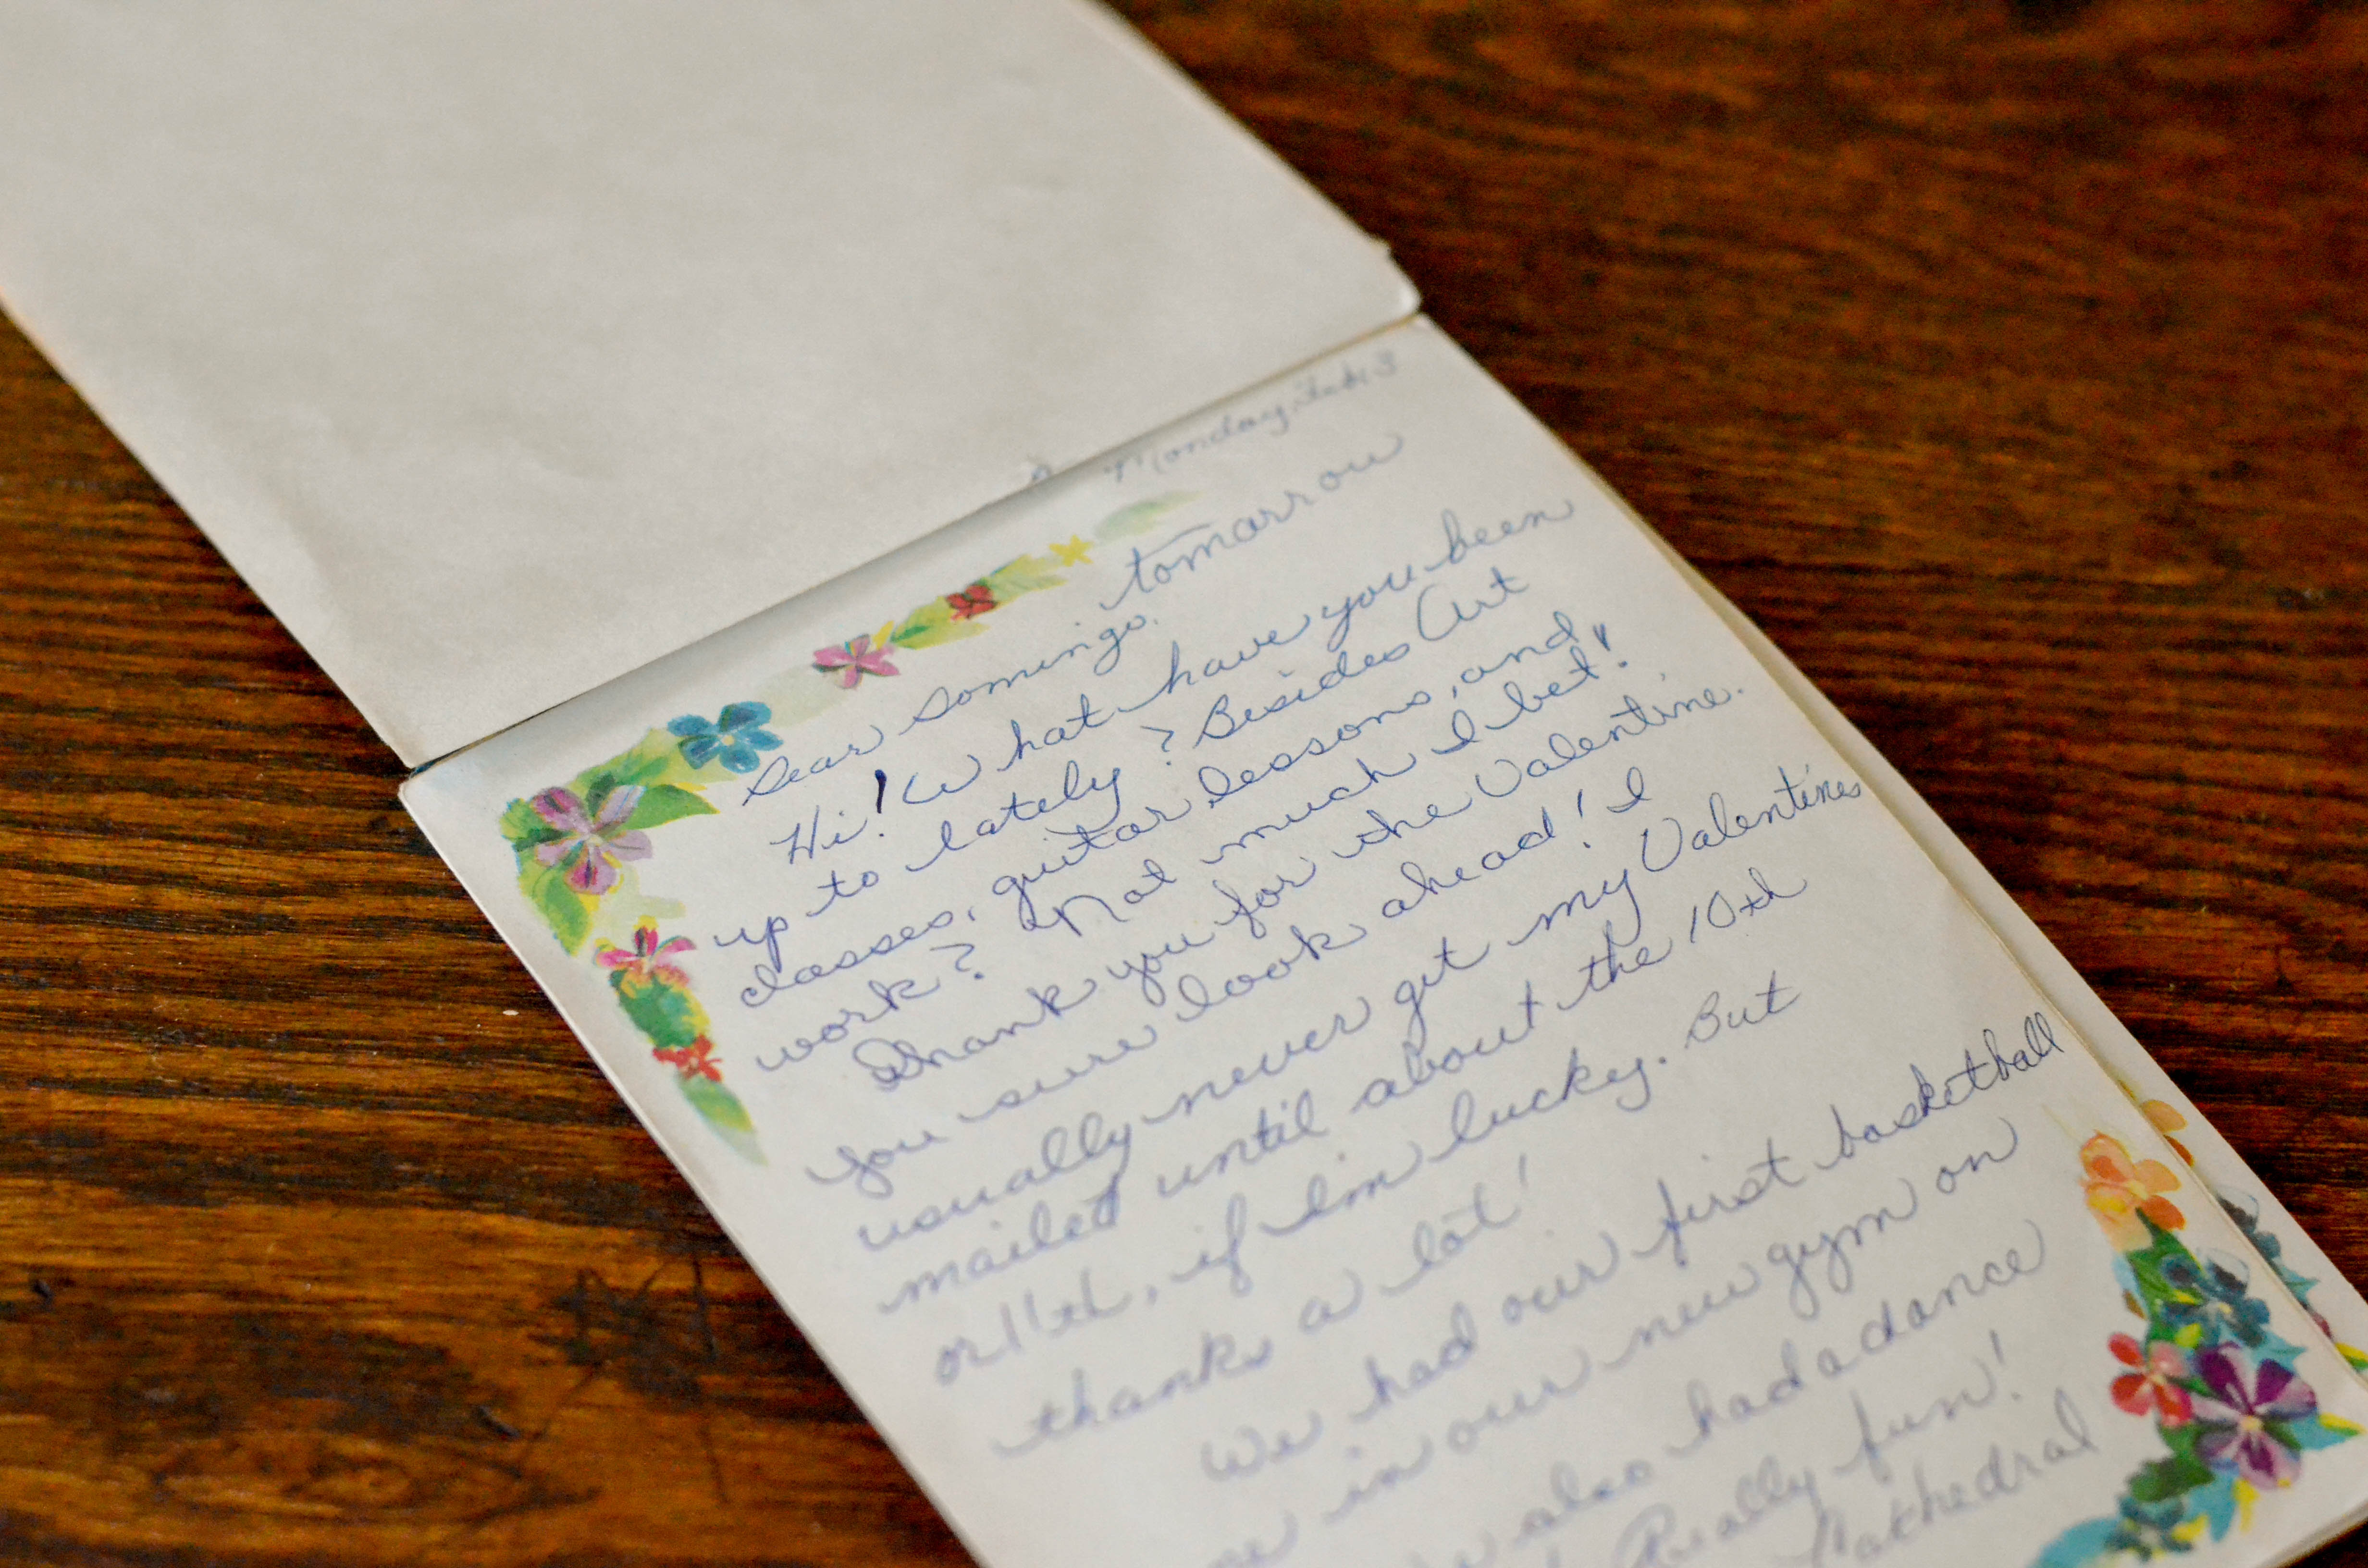 Monday, Feb 3
Dear Domingo, tomorrow
Hi! What have you been
up to lately? Besides Art
classes, guitar lessons, and
work? Not much I bet!
Thank you for the Valentine.
you sure look ahead! I
usually never get my Valentines
mailed until about the 10th
or 11th, if I'm lucky. But
thanks a lot!
We had our first basketball
in our new gym on
also had a dance
Really fun!
Cathedral